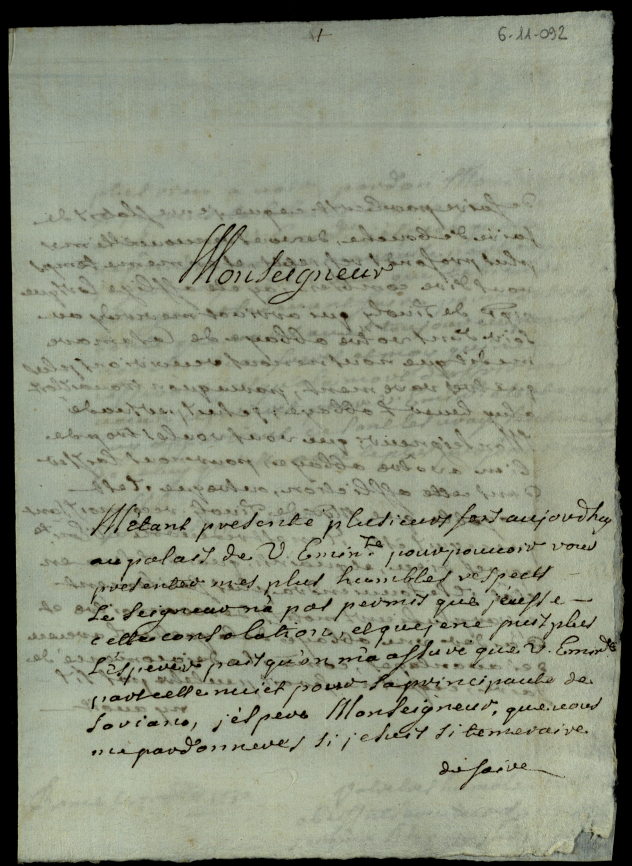 6-11-092
Monseigneur
M'etant presenté plusieurs fois aujourdhuy
au palais de V. Emin.ce pour pouvoir vous
presenter mes plus humbles respects
Le Seigneur n'a pas permis que j'eusse
cette consolation, et que je ne puis plus
L'esperer puis qu'on m'a assuré que V. Emin.ce
part cette nuict pour la principauté de
Soviano, j'espere Monseigneur, que vous
me pardonneres si je suis si temeraire
de faire